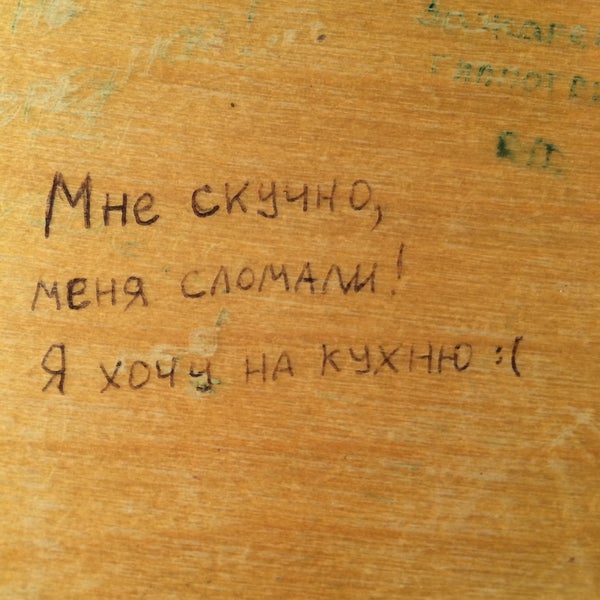 Мне скучно,
меня сломали!
Я хочу на кухню :(